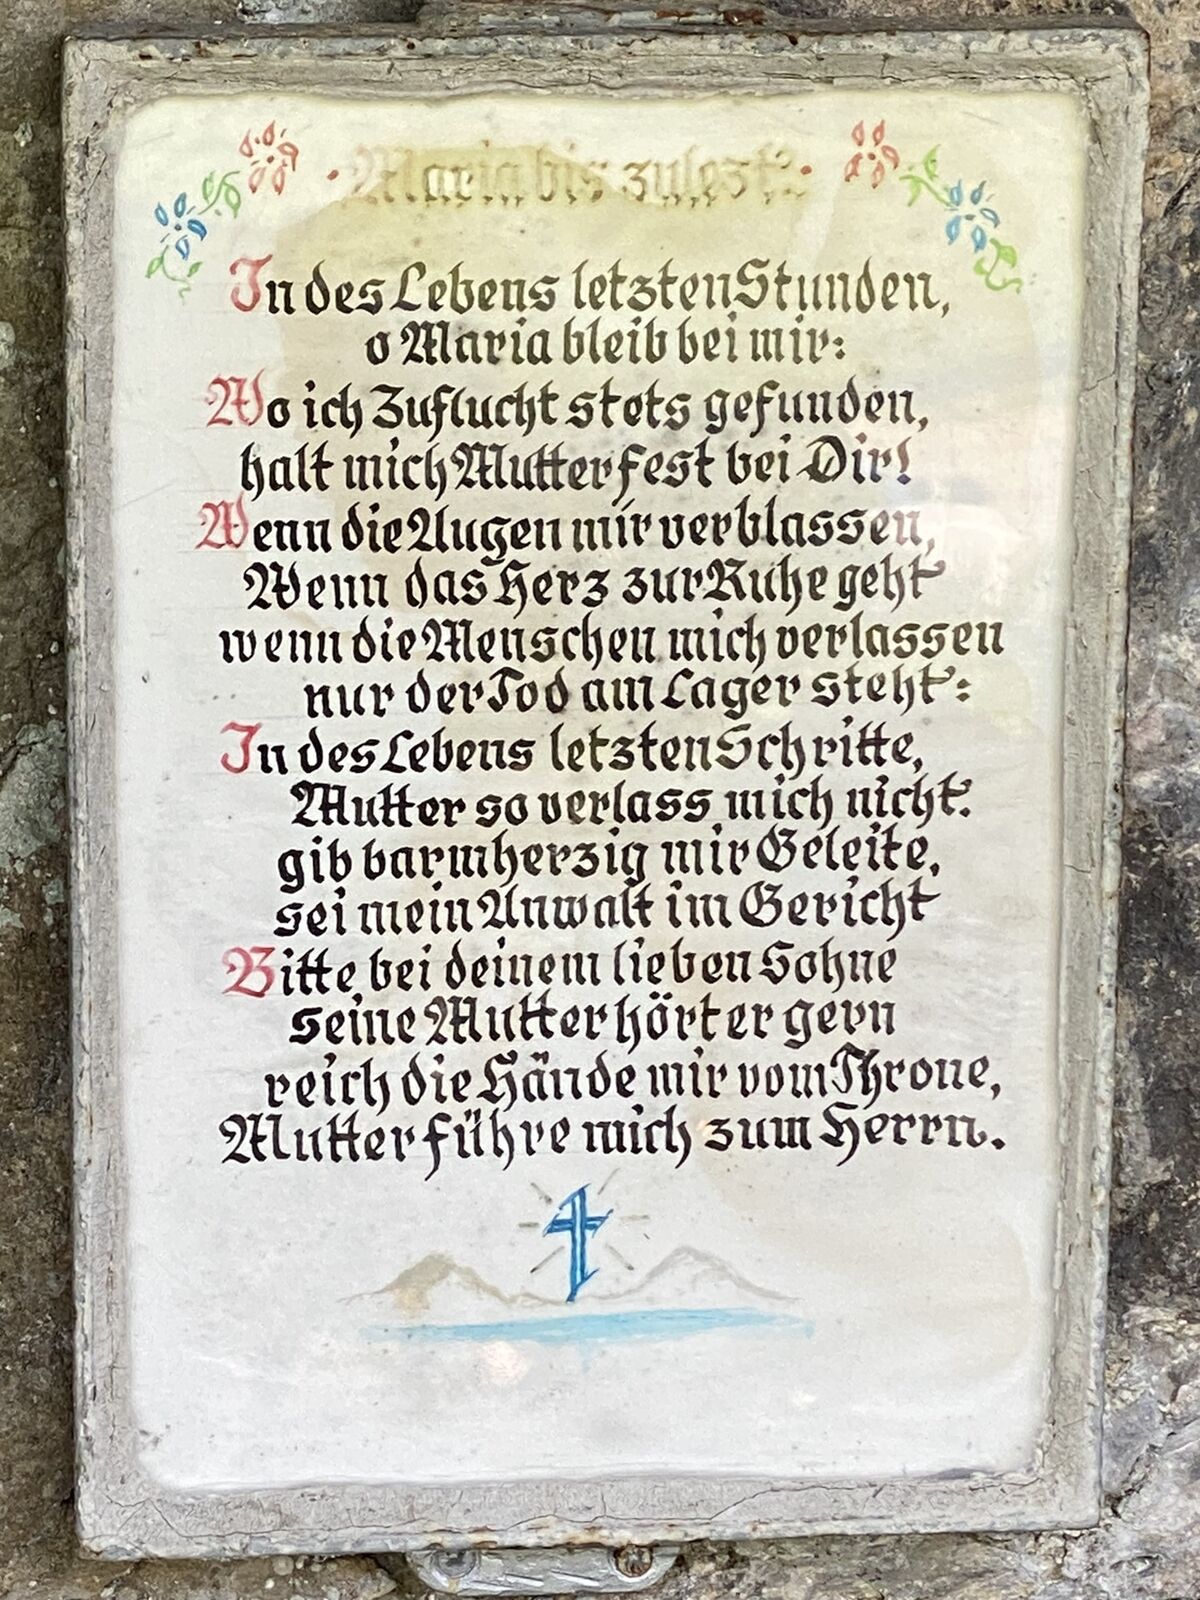 · Maria bis zulezt ·
In des Lebens letzten Stunden,
o Maria bleib bei mir:
Wo ich Zuflucht stets gefunden,
halt mich Mutter fest bei Dir!
Wenn die Augen mir verblassen,
Wenn das Herz zur Ruhe geht
wenn die Menschen mich verlassen
nur der Tod am Lager steht:
In des Lebens letzten Schritte,
Mutter so verlass mich nicht.
gib barmherzig mir Geleite,
sei mein Anwalt im Gericht
Bitte bei deinem lieben Sohne
seine Mutter hört er gern
reich die Hände mir vom Throne,
Mutter führe mich zum Herrn.